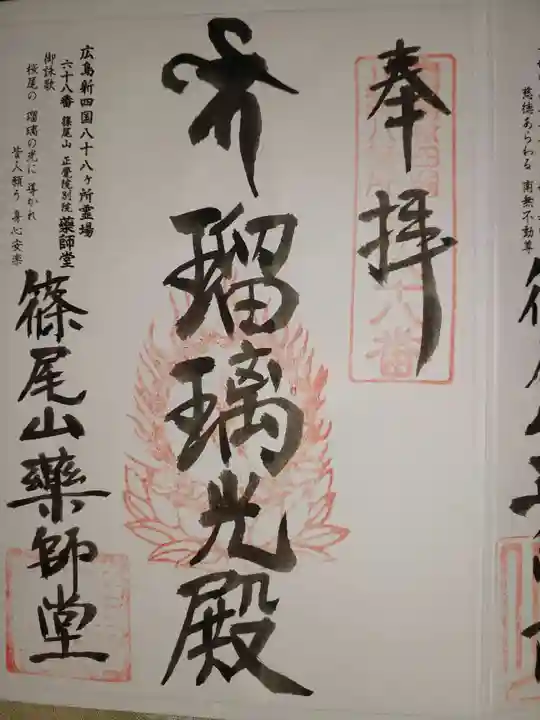 奉拝
瑠璃光殿
広島新四国八十八ヶ所霊場
六十八番 篠尾山 正覺院別院 藥師堂
御詠歌
桜尾の 瑠璃の光に 導かれ
皆人願う 身心安楽
篠尾山藥師堂
慈徳あらわる 南無不動尊